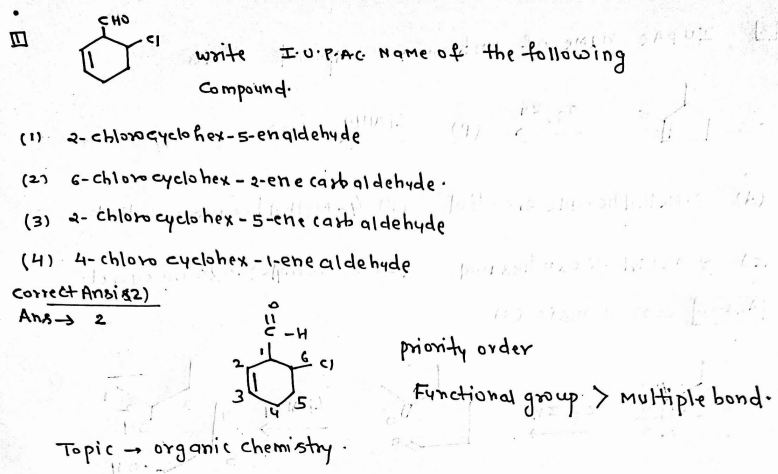 CHO
11 Cl write I.U.P.AC Name of the following
Compound.
(1) 2-chlorocyclohex-5-enaldehyde
(2) 6-chlorocyclohex-2-ene carbaldehyde.
(3) 2-chlorocyclohex-5-ene carbaldehyde
(4) 4-chloro cyclohex-1-ene aldehyde
Correct Ansi (2)
Ans→ 2
O
C-H
1
2 6 Cl
3 5
4
priority order
Functional group > Multiple bond.
Topic → organic chemistry.